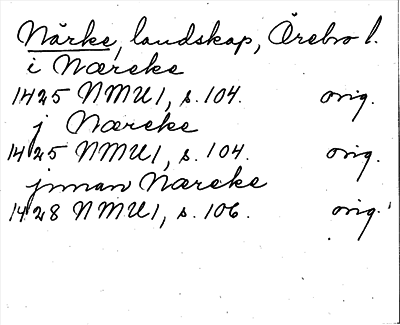 Närke, landskap, Örebro l.
i Nærcke
1425 NMU1, s. 104. orig.
j Nærcke
1425 NMU1, s. 104. orig.
jnnan Nærcke
1428 NMU1, s. 106. orig.